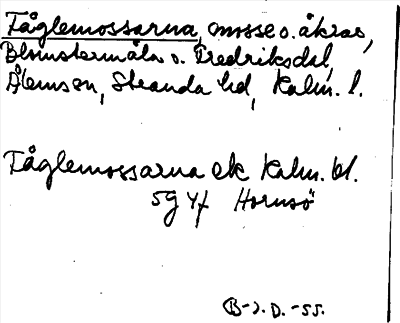 Fåglemossarna, mosse o. åkrar,
Blomstermåla o. Fredriksdal,
Ålems sn, Stranda hd, Kalm. l.
Fåglemossarna ek Kalm. bl.
5g 4f Hornsö
B-J. D. -55.